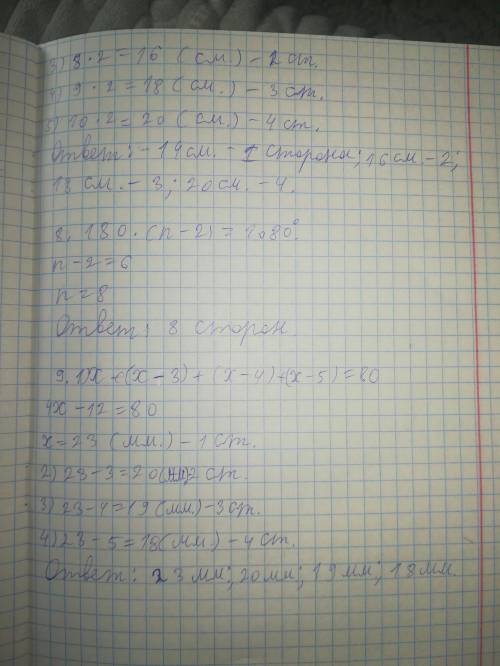 3) 8 · 2 = 16 (см.) - 2 ст.
4) 9 · 2 = 18 (см.) - 3 ст.
5) 10 · 2 = 20 (см.) - 4 ст.
Ответ: - 14 см. - 1 сторона; 16 см. - 2;
18 см. - 3; 20 см. - 4.
8. 180 · (n - 2) = 1080°.
n - 2 = 6
n = 8
Ответ: 8 сторон.
9. 1) x + (x - 3) + (x - 4) + (x - 5) = 80
4x - 12 = 80
x = 23 (мм.) - 1 ст.
2) 23 - 3 = 20 (мм) 2 ст.
3) 23 - 4 = 19 (мм.) - 3 ст.
4) 23 - 5 = 18 (мм.) - 4 ст.
Ответ: 23 мм; 20 мм; 19 мм; 18 мм.